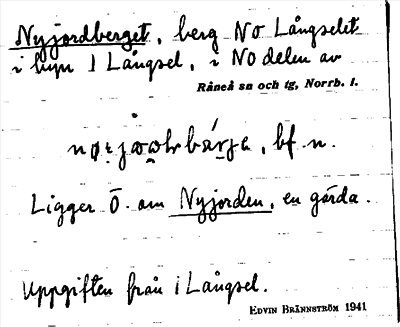 Nyjordberget, berg NO Långselet
i byn 1 Långsel, i NO delen av
Råneå sn och tg, Norrb. l.
bf n.
Ligger Ö. om Nyjorden, en gärda.
Uppgiften från i Långsel.
EDVIN BRÄNNSTRÖM 1941